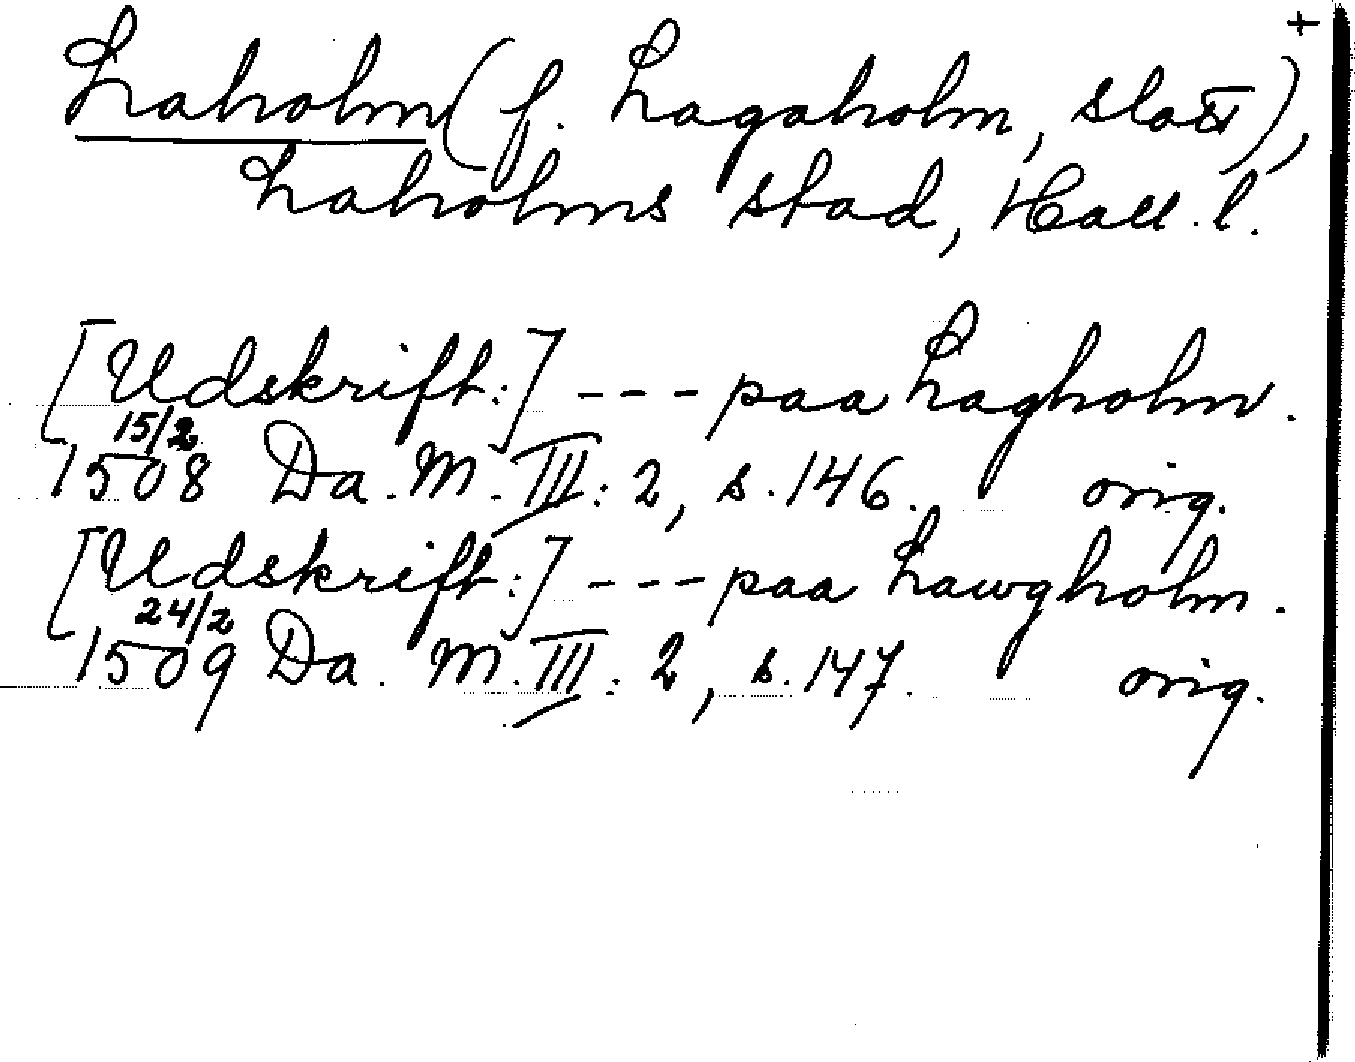 +
Laholm (f. Lagaholm, slott),
Laholms stad, Hall. l.
[Udskrift:] --- paa Lagholm.
15/2
1508 Da. M. III: 2, s. 146. orig.
[Udskrift:] --- paa Lawgholm.
24/2
1509 Da. M. III: 2, s. 147. orig.